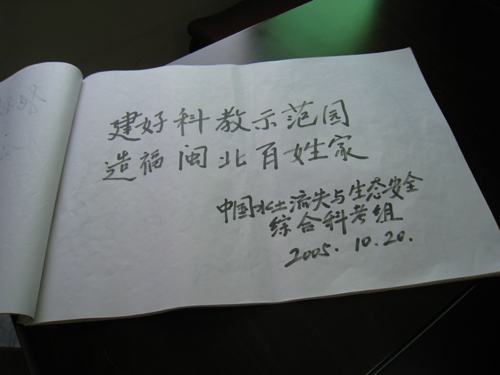 建好科教示范园
造福闽北百姓家
中国水土流失与生态安全
综合科考组
2005.10.20.